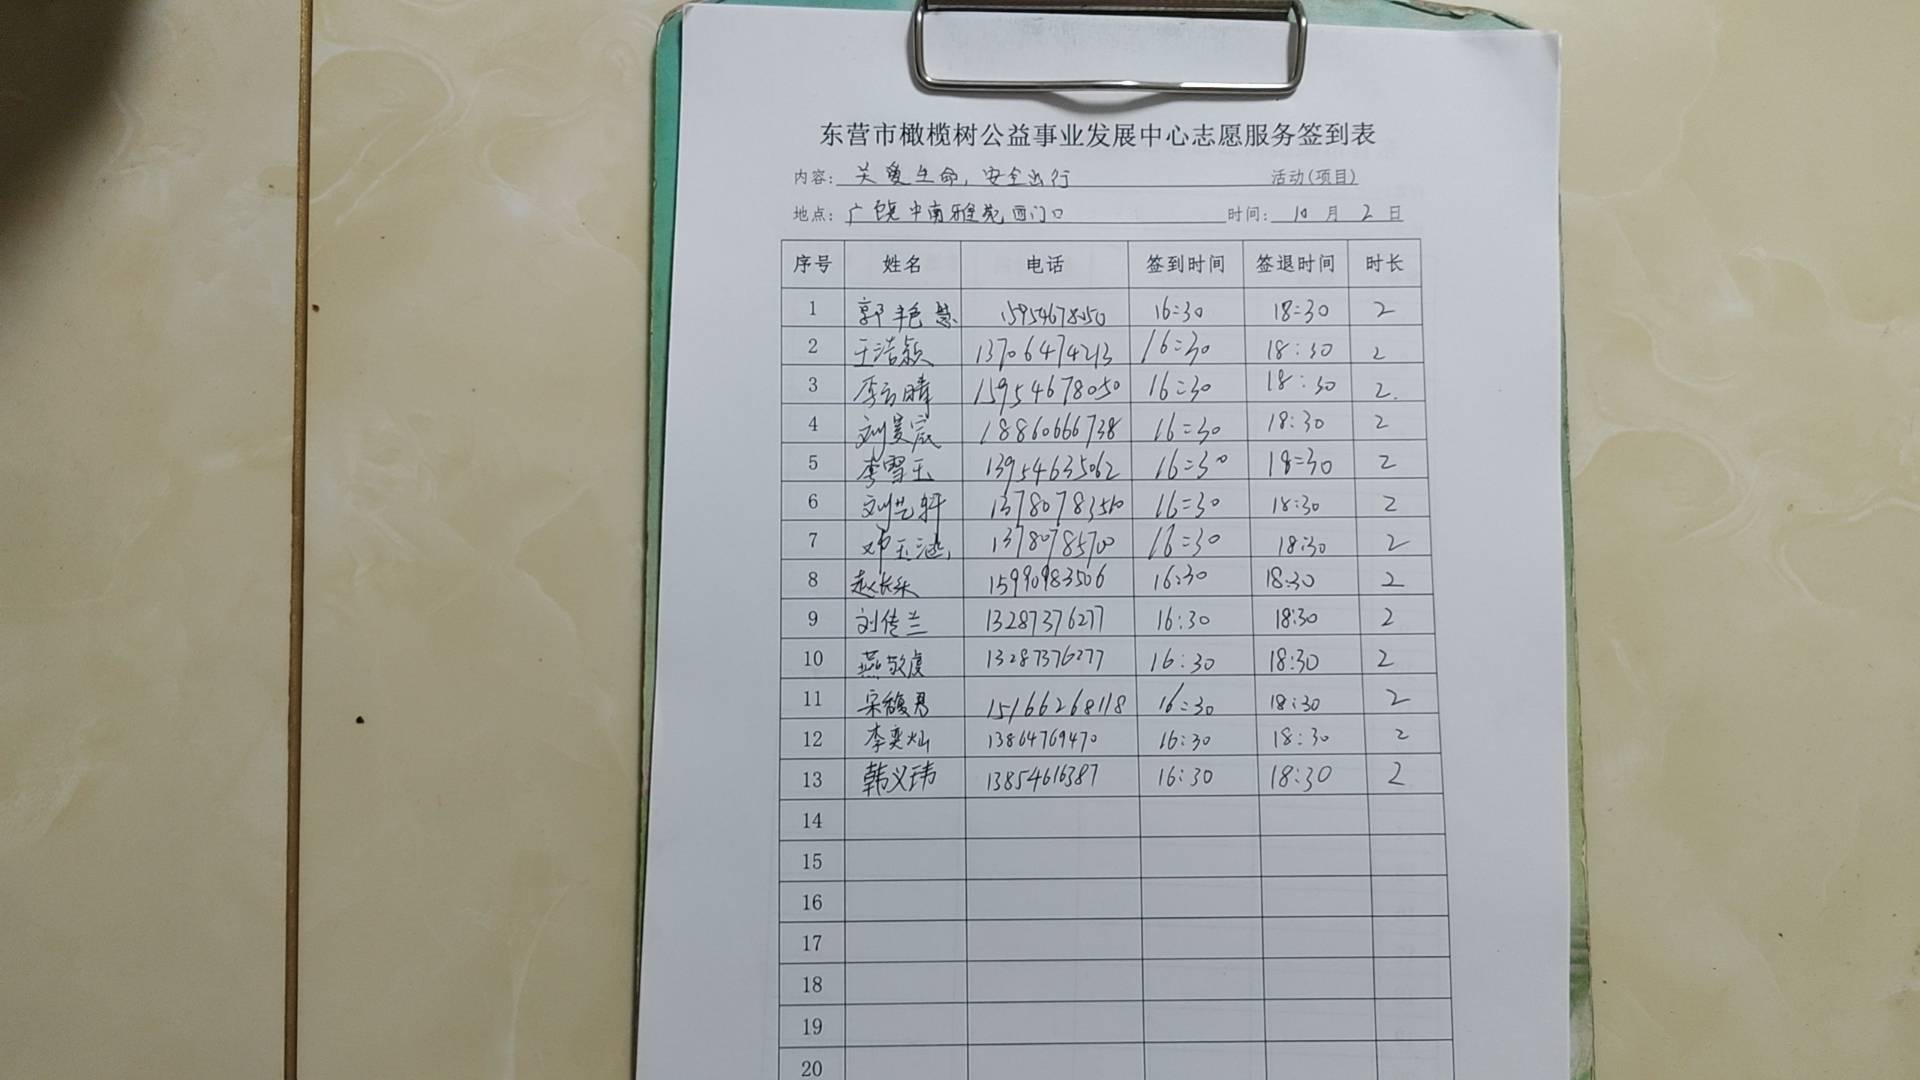 东营市橄榄树公益事业发展中心志愿服务签到表
内容: 关爱生命,安全出行 活动(项目)
地点: 广饶中南雅苑西门口 时间: 10 月 2 日
序号 姓名 电话 签到时间 签退时间 时长
1 郭艳慧 15954678050 16:30 18:30 2
2 王浩颖 13706474213 16:30 18:30 2
3 李云晴 15954678050 16:30 18:30 2
4 刘昊宸 18860666738 16:30 18:30 2
5 李雪玉 13954635062 16:30 18:30 2
6 刘艺轩 13780783510 16:30 18:30 2
7 邓玉涵 13780785700 16:30 18:30 2
8 赵长乐 15990983506 16:30 18:30 2
9 刘传兰 13287376277 16:30 18:30 2
10 燕敬虔 13287376277 16:30 18:30 2
11 宋馥君 15166268118 16:30 18:30 2
12 李奕灿 13864769470 16:30 18:30 2
13 韩义玮 13854616387 16:30 18:30 2
14
15
16
17
18
19
20